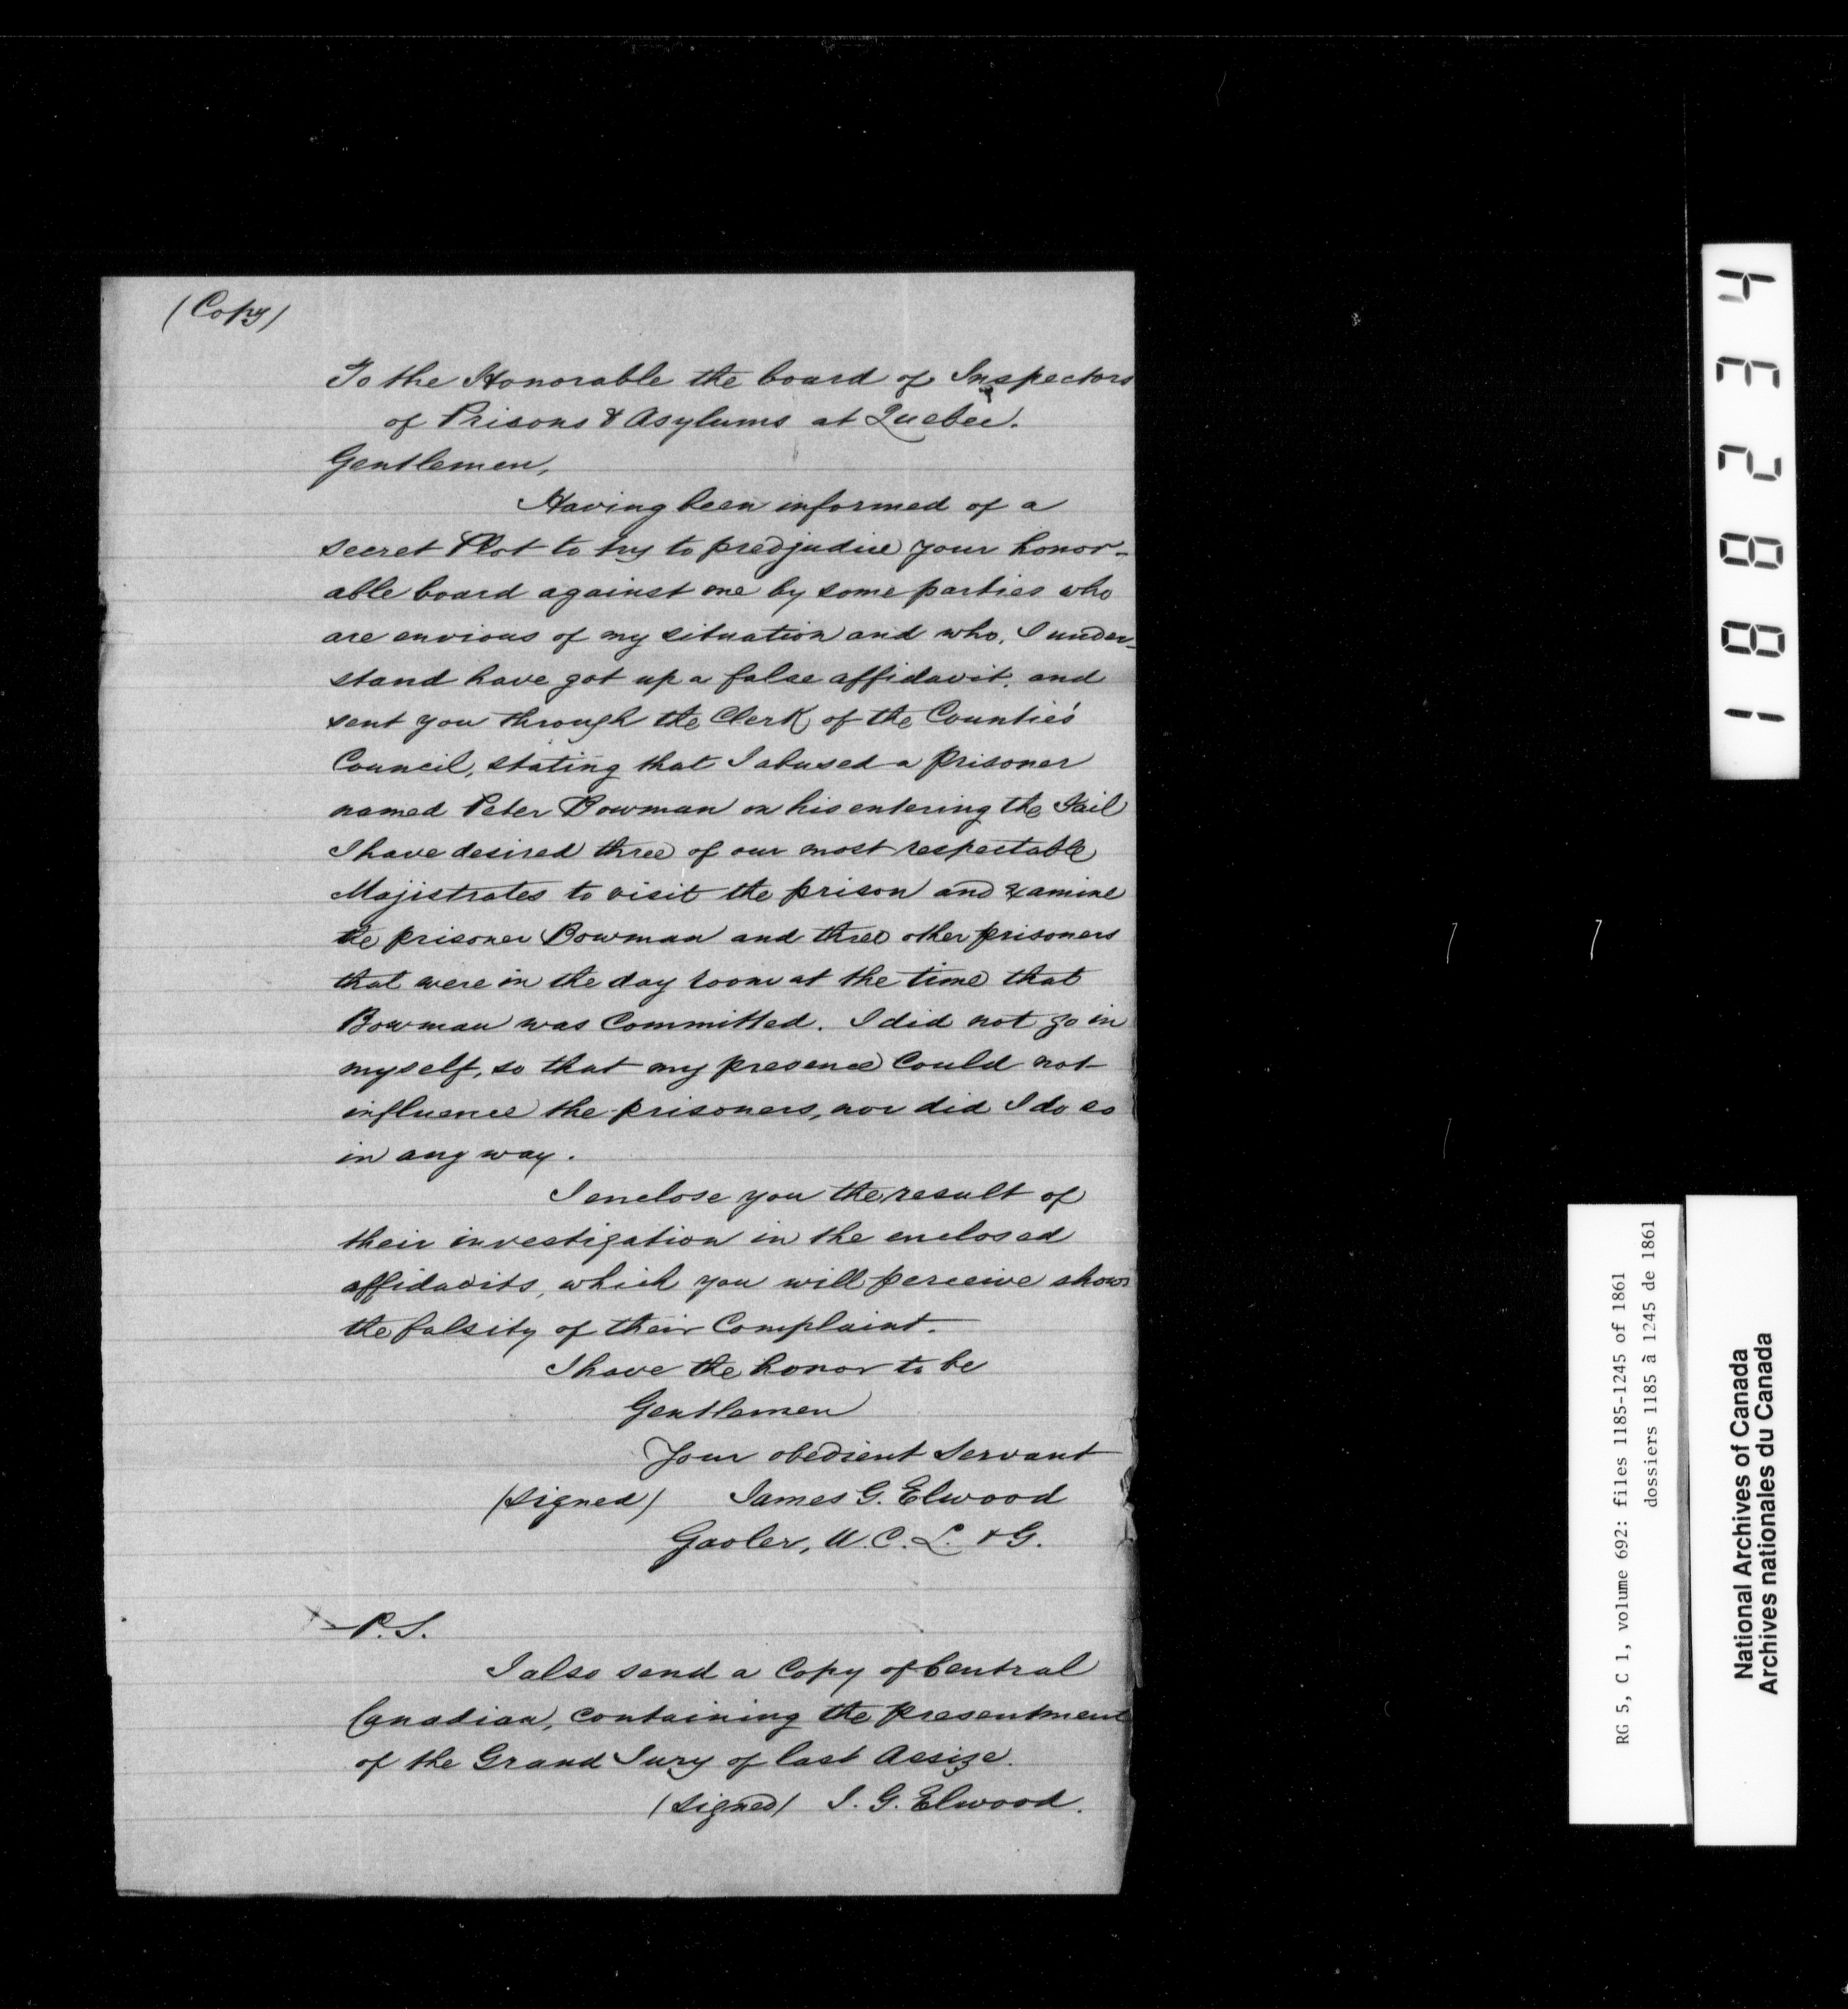 (Copy)
To the Honorable the board of Inspectors
of Prisons & Asylums at Quebec.
Gentlemen,
Having been informed of a
secret Plot to try to predjudice your honor-
able board against me by some parties who
are envious of my situation and who, I under-
stand have got up a false affidavit, and
sent you through the Clerk of the Countie's
Council, stating that I abused a prisoner
named Peter Bowman on his entering the Jail
I have desired three of our most respectable
Majistrates to visit the prison and examine
the prisoner Bowman and three other prisoners
that were in the day room at the time that
Bowman was Committed. I did not go in
myself, so that my presence Could not
influence the prisoners, nor did I do so
in any way.
I enclose you the result of
their investigation in the enclosed
affidavits, which you will perceive shows
the falsity of their Complaint.
I have the honor to be
Gentlemen
Your obedient Servant
(Signed) James G. Elwood
Gaoler, U.C.L. & G.
P.S.
I also send a Copy of Central
Canadian, containing the presentment
of the Grand Jury of last Assize.
(Signed) J. G. Elwood.
188234
RG 5, C 1, volume 692: files 1185-1245 of 1861
dossiers 1185 à 1245 de 1861
National Archives of Canada
Archives nationales du Canada